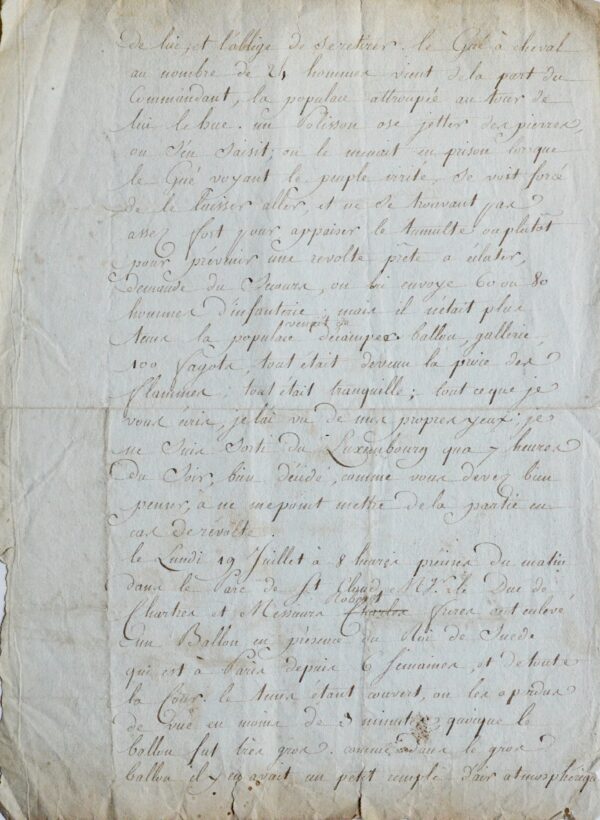 de lui et l'oblige de se retirer. le Gué à cheval
au nombre de 24 hommes vient de la part du
Commandant, la populace attroupée au tour de
lui le hue. un Polisson ose jetter des pierres,
on s'en saisit; on le menait en prison lorsque
le Gué voyant le peuple irrité, se voit forcé
de le laisser aller, et ne se trouvant pas
assez fort pour appaiser le tumulte ou plutôt
pour prévenir une révolte prête a éclater,
demande du Secours, on lui envoye 60 ou 80
hommes d'infanterie, mais il n'était plus
tems la populace venait de décamper ballon, gallerie,
100 fagots, tout était devenu la proie des
flammes; tout était tranquille; tout ce que je
vous écris, je l'ai vu de mes propres yeux: je
ne suis sorti du Luxembourg qu'a 7 heures
du Soir, bien décidé, comme vous devez bien
penser, à ne me point mettre de la partie en
cas de révolte.
le Lundi 19 Juillet à 8 heures précises du matin
dans le Parc de St Cloud, Mr. le Duc de
Chartres et Messieurs Robert frères ont enlevé
un Ballon en présence du Roi de Suede
qui est à Paris depuis 6 Semaines, et de toute
la Cour. le tems étant couvert, on les a perdus
de vue en moins de 3 minutes quoique le
ballon fut très gros. comme dans le gros
ballon il y en avait un petit rempli d'air atmosphérique